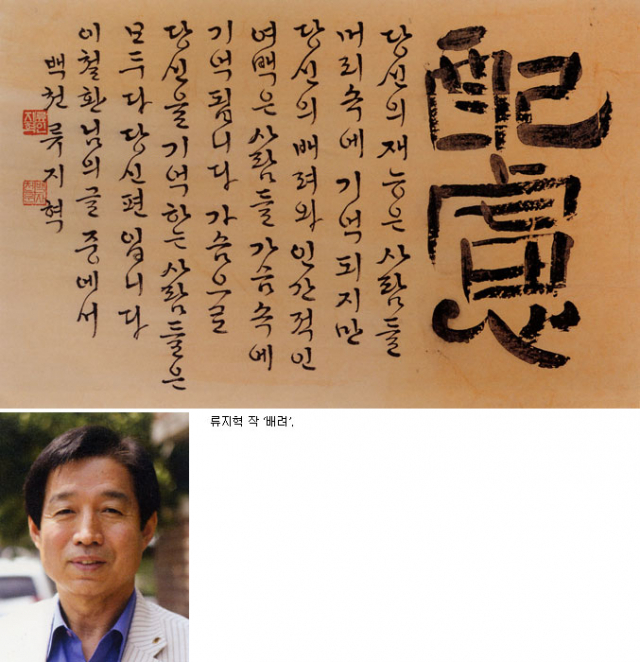 配慮
당신의 재능은 사람들
머리속에 기억되지만
당신의 배려와 인간적인
여백은 사람들 가슴속에
기억됩니다 가슴으로
당신을 기억하는 사람들은
모두다 당신편입니다
이철환님의 글 중에서
백천 류지혁
류지혁 작 ‘배려’.